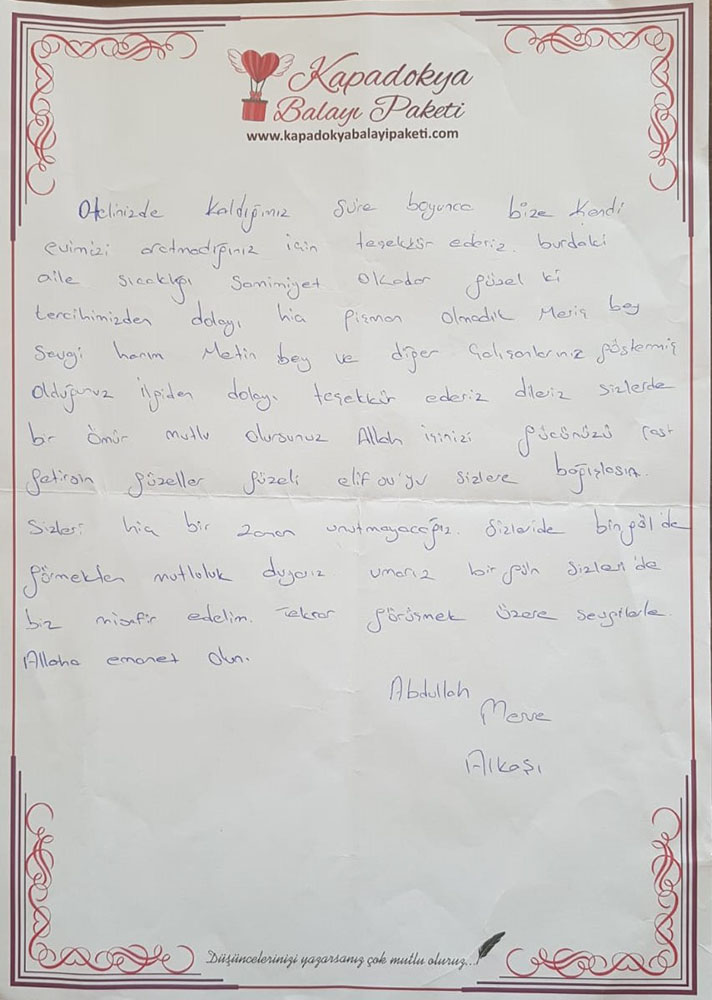 Kapadokya
Balayı Paketi
www.kapadokyabalayipaketi.com
Otelinizde kaldığımız süre boyunca bize kendi
evimizi aratmadığınız için teşekkür ederiz. burdaki
aile sıcaklığı samimiyet okadar güzel ki
tercihimizden dolayı hiç pişman olmadık Meriç bey
Sevgi hanım Metin bey ve diğer çalışanlarınız göstermiş
olduğunuz ilgiden dolayı teşekkür ederiz dileriz sizlerde
bir ömür mutlu olursunuz Allah işinizi gücünüzü rast
getirsin güzeller güzeli elif su'yu sizlere bağışlasın.
Sizleri hiç bir zaman unutmayacağız. Sizleride bingöl'de
görmekten mutluluk duyarız. umarız bir gün sizleri'de
biz misafir edelim. Tekrar görüşmek üzere sevgilerle.
Allaha emanet olun.
Abdullah
Merve
Alkaşı
Düşüncelerinizi yazarsanız çok mutlu oluruz...